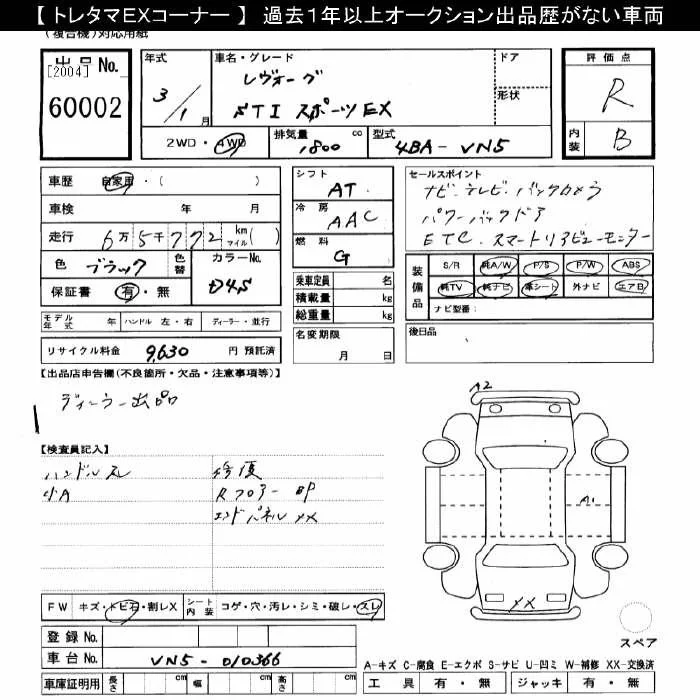 【 トレタマEXコーナー 】 過去１年以上オークション出品歴がない車両
(複合機)対応用紙
出品 No.
[2004]
60002
年式
3/1月
車名・グレード
レヴォーグ
STI スポーツEX
ドア
形状
評価点
R
内装
B
2WD・4WD
排気量 1,800 cc
型式 4BA-VN5
車歴 自家用・( )
車検 年 月
走行 6万5千772 km マイル( )
色 ブラック 色替
カラーNo. D4S
保証書 有・無
モデル年式 年 ハンドル 左・右 ディーラー・並行
リサイクル料金 9,630 円 預託済
シフト AT
冷房 AAC
燃料 G
乗車定員 名
積載量 kg
総重量 kg
名変期限
月 日
セールスポイント
ナビ・テレビ・バックカメラ
パワーバックドア
ETC・スマートリアビューモニター
装備品
S/R 純A/W P/S P/W ABS
純TV 純ナビ 革シート 外ナビ エアB
ナビ型番:
後日品
【出品店申告欄(不良箇所・欠品・注意事項等)】
ディーラー出品
【検査員記入】
ハンドルスレ 修復
小A Rフロアー BP
エンドパネル XX
A2
A1
XX
FW キズ・トビ石・割レX シート内装 コゲ・穴・汚レ・シミ・破レ・スレ
登録 No.
車台 No. VN5-010366
車庫証明用 長さ cm 幅 cm 高さ cm
スペア
A-キズ C-腐食 E-エクボ S-サビ U-凹ミ W-補修 XX-交換済
工具 有・無 ジャッキ 有・無